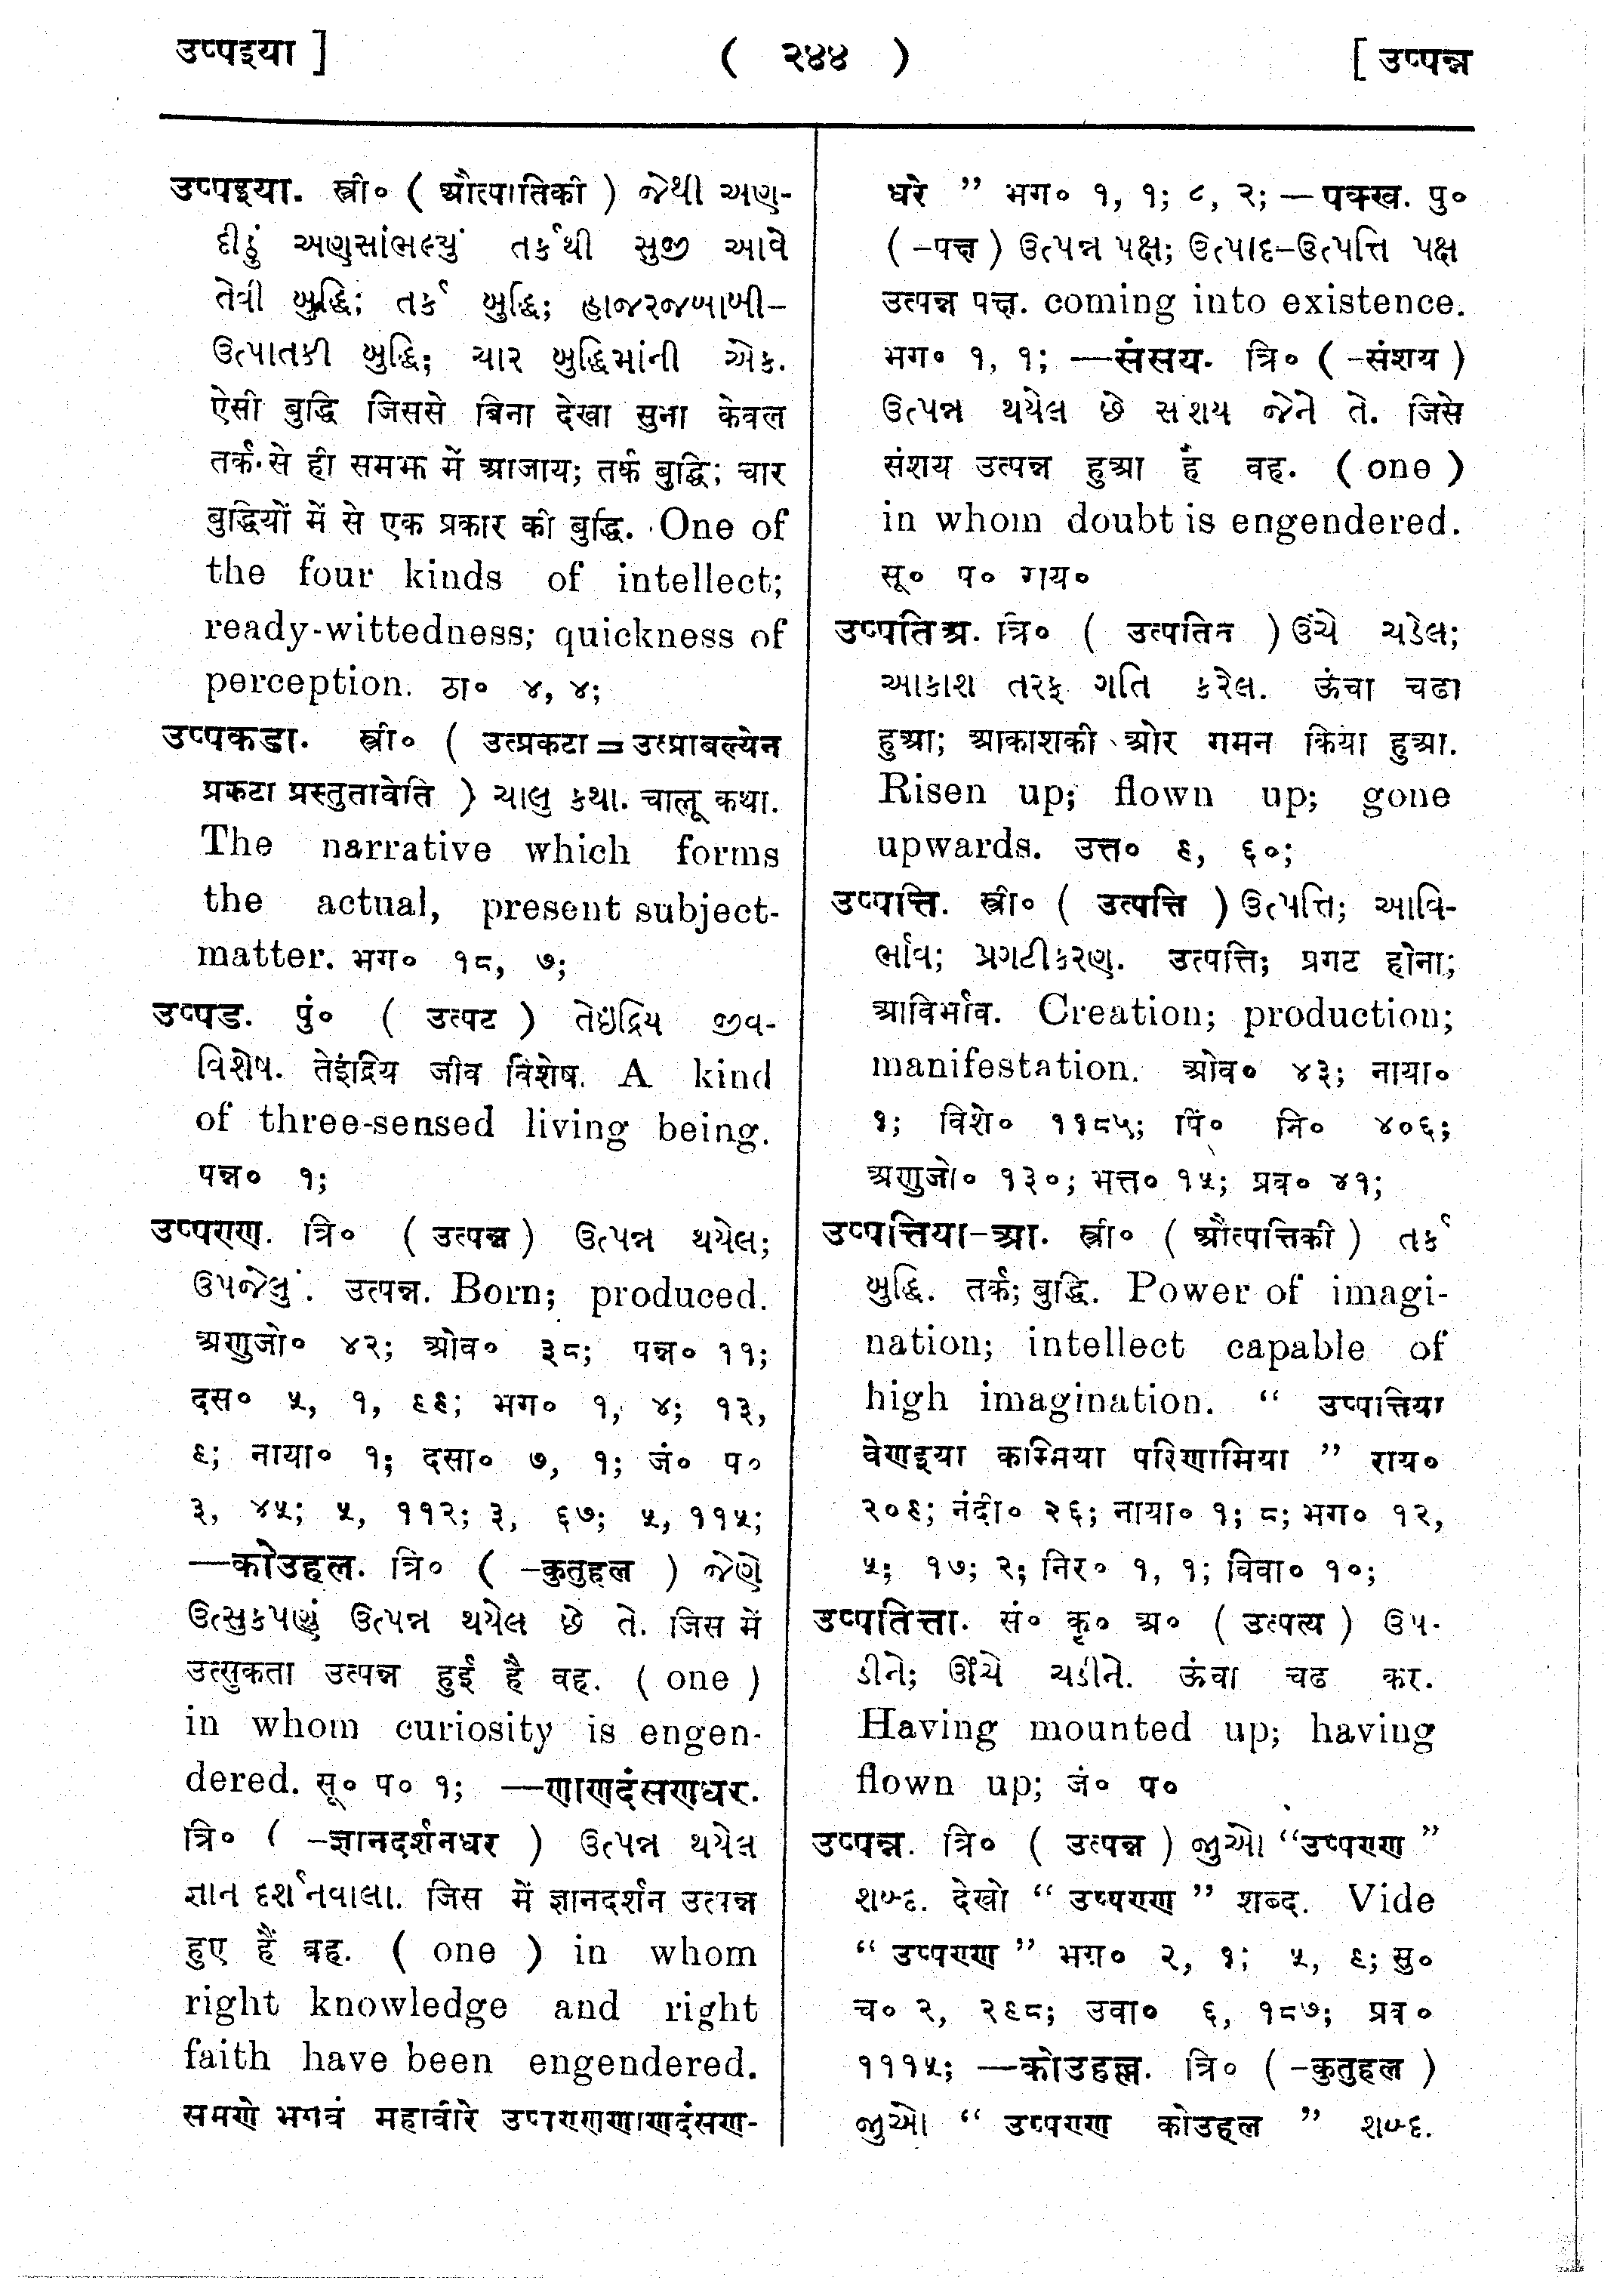 उप्पइया ]
( २४४ )
[ उप्पन्न
उप्पइया. स्त्री० ( औत्पातिकी ) જેથી અણ-
દીઠું અણસાંભલ્યું તર્કથી સુજી આવે
તેત્રી બુદ્ધિ; તર્ક બુદ્ધિ; હાજરજબાબી-
ઉત્પાતકી બુદ્ધિ; ચાર બુદ્ધિમાંની એક.
ऐसी बुद्धि जिससे बिना देखा सुना केवल
तर्क से ही समझ में आजाय; तर्क बुद्धि; चार
बुद्धियों में से एक प्रकार की बुद्धि. One of
the four kinds of intellect;
ready-wittedness; quickness of
perception. ठा० ४, ४;
उप्पकडा. स्त्री० ( उत्प्रकटा = उत्प्राबल्येन
प्रकटा प्रस्तुतावेति ) ચાલુ કથા. चालू कथा.
The narrative which forms
the actual, present subject-
matter. भग० १८, ७;
उप्पड. पुं० ( उत्पट ) તેઇંદ્રિય જીવ-
વિશેષ. तेइंद्रिय जीव विशेष. A kind
of three-sensed living being.
पन्न० १;
उप्पण्ण. त्रि० ( उत्पन्न ) ઉત્પન્ન થયેલ;
ઉપજેલું. उत्पन्न. Born; produced.
अणुजो० ४२; ओव० ३८; पन्न० ११;
दस० ५, १, ६६; भग० १, ४; १३,
६; नाया० १; दसा० ७, १; जं० प०
३, ४५; ५, ११२; ३, ६७; ५, ११५;
—कोउहल. त्रि० ( -कुतुहल ) જેણે
ઉત્સુકપણું ઉત્પન્ન થયેલ છે તે. जिस में
उत्सुकता उत्पन्न हुई है वह. ( one )
in whom curiosity is engen-
dered. सू० प० १; —णाणदंसणधर.
त्रि० ( -ज्ञानदर्शनधर ) ઉત્પન્ન થયેલ
જ્ઞાન દર્શનવાલા. जिस में ज्ञानदर्शन उत्पन्न
हुए हैं वह. ( one ) in whom
right knowledge and right
faith have been engendered.
समणे भगवं महावीरे उप्पण्णणाणदंसण-
धरे ” भग० १, १; ८, २; —पक्ख. पु०
( -पक्ष ) ઉત્પન્ન પક્ષ; ઉત્પાદ-ઉત્પત્તિ પક્ષ
उत्पन्न पक्ष. coming into existence.
भग० १, १; —संसय. त्रि० ( -संशय )
ઉત્પન્ન થયેલ છે સંશય જેને તે. जिसे
संशय उत्पन्न हुआ है वह. ( one )
in whom doubt is engendered.
सू० प० राय०
उप्पतिअ. त्रि० ( उत्पतित ) ઉંચે ચડેલ;
આકાશ તરફ ગતિ કરેલ. ऊंचा चढा
हुआ; आकाशकी ओर गमन किया हुआ.
Risen up; flown up; gone
upwards. उत्त० ६, ६०;
उप्पत्ति. स्त्री० ( उत्पत्ति ) ઉત્પત્તિ; આવિ-
ર્ભાવ; પ્રગટીકરણ. उत्पत्ति; प्रगट होना;
आविर्भाव. Creation; production;
manifestation. ओव० ४३; नाया०
१; विशे० ११८५; पिं० नि० ४०६;
अणुजो० १३०; भत्त० १५; प्रव० ४१;
उप्पत्तिया-आ. स्त्री० ( औत्पत्तिकी ) તર્ક
બુદ્ધિ. तर्क; बुद्धि. Power of imagi-
nation; intellect capable of
high imagination. “ उप्पत्तिया
वेणइया कम्मिया परिणामिया ” राय०
२०६; नंदी० २६; नाया० १; ८; भग० १२,
५; १७; २; निर० १, १; विवा० १०;
उप्पतित्ता. सं० कृ० अ० ( उत्पत्य ) ઉપ-
ડીને; ઊંચે ચડીને. ऊंचा चढ कर.
Having mounted up; having
flown up; जं० प०
उप्पन्न. त्रि० ( उत्पन्न ) જુઓ “उप्पण्ण”
શબ્દ. देखो “ उप्पण्ण ” शब्द. Vide
“ उप्पण्ण ” भग० २, १; ५, ६; सु०
च० २, २६८; उवा० ६, १८७; प्रव०
१११५; —कोउहल्ल. त्रि० ( -कुतुहल )
જુઓ “ उप्पण्ण कोउहल ” શબ્દ.